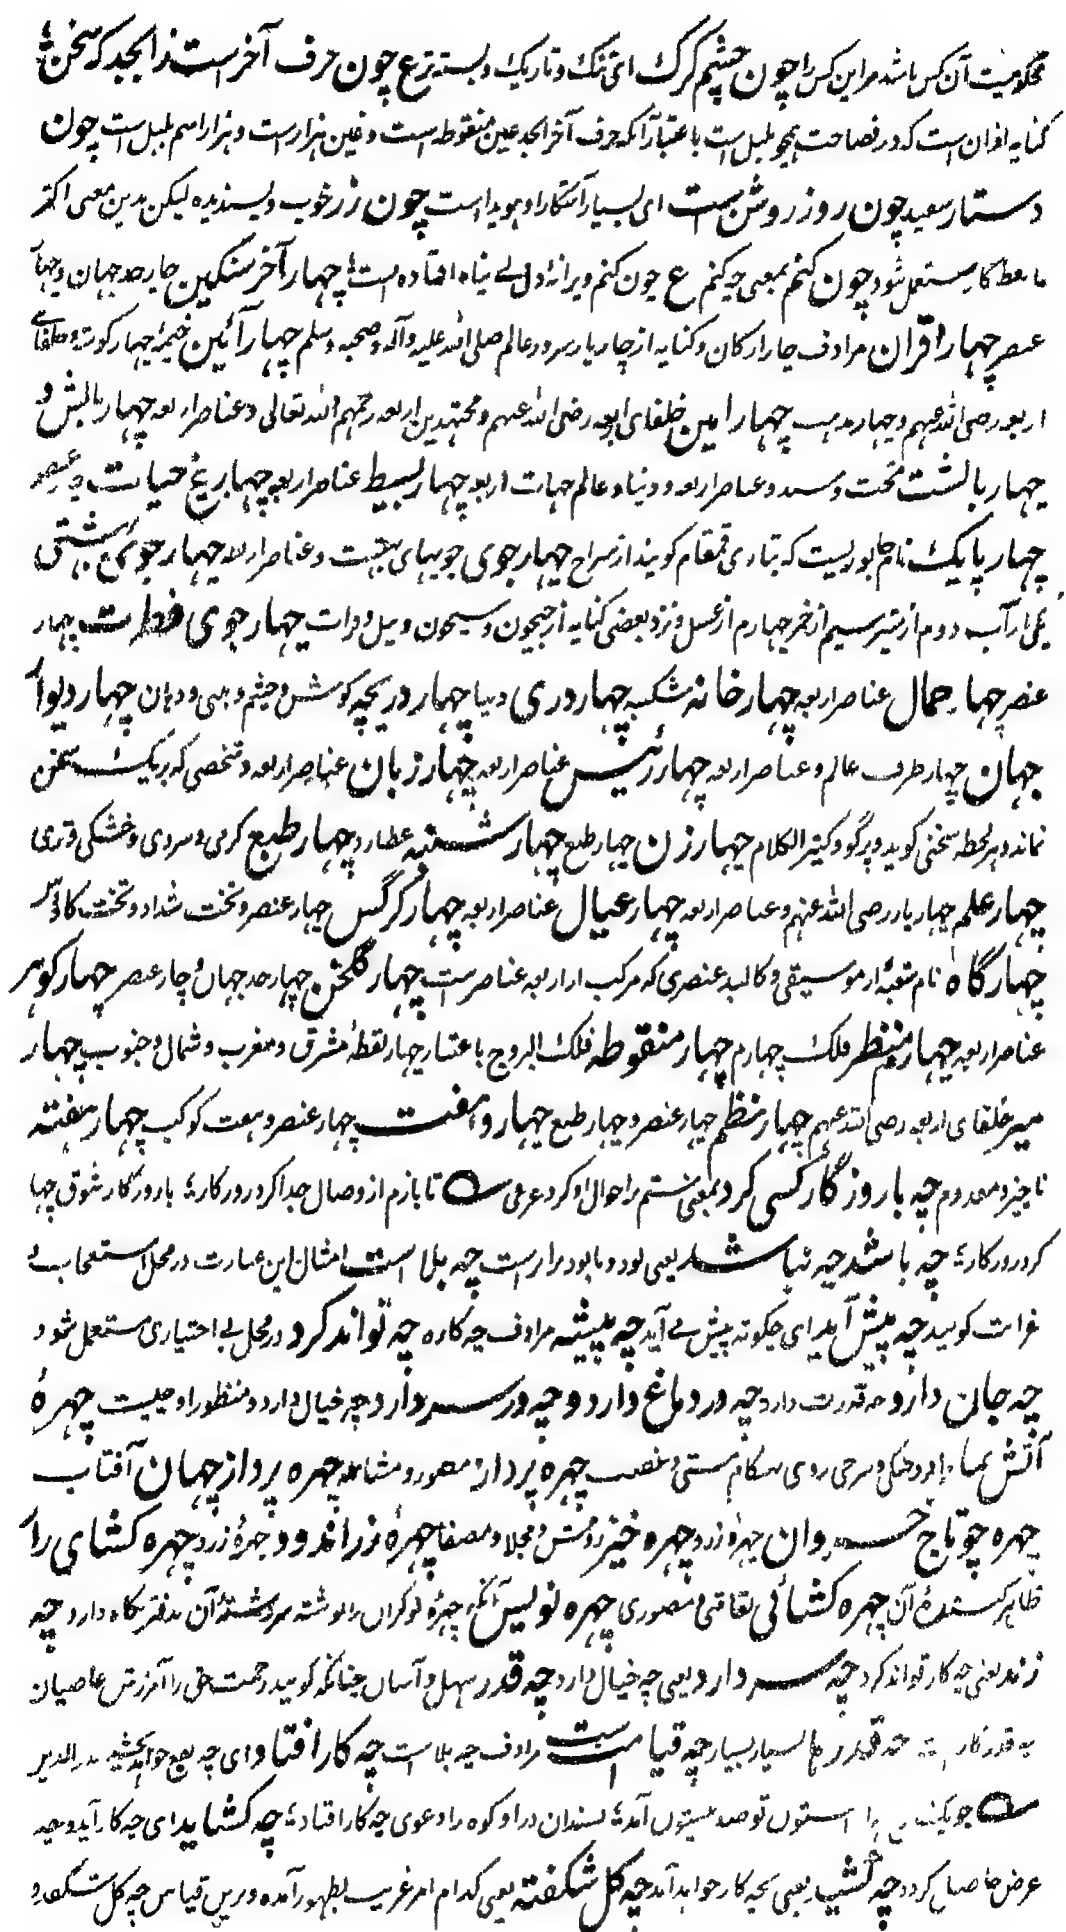 محکومیت آن کس باشد مر این کس را چون چشم کرک ای تنک و تاریک و بسته ترع چون حرف آخر است ز ابجد که سخن
کنایه ازان است که در فصاحت همچو بلبل است باعتبار آنکه حرف آخر ابجد عین منقوطه است و غین هزار است و هزار اسم بلبل است چون
دستار سعید چون روز روشن است ای بسیار آشکارا و هویدا است چون زر خوب و پسندیده لیکن بدین معنی اکثر
ما مستعمل شود چون کنم بمعنی چه کنم ع چون کنم ویرانهٔ دل بے پناه افتاده است چهار آخر سنکین چار حد جهان و چهار
عنصر چهار اقران مرادف چار ارکان و کنایه از چار یار سرور عالم صلی الله علیه و آله و صحبه وسلم چهار آئین خیمهٔ چهار کوشه و خلفای
اربعه رضی الله عنهم و چهار مذهب چهار امین خلفای اربعه رضی الله عنهم و مجتهدین اربعه رحمهم الله تعالی و عناصر اربعه چهار بالش و
چهار بالشت تخت و مسند و عناصر اربعه و دنیا و عالم جهات اربعه چهار بسیط عناصر اربعه چهار بیخ حیات چار عنصر
چهار پایک نام جانوریست که بتازی قمقام کویند از سراج چهار جوی جویهای بهشت و عناصر اربعه چهار جوی بهشتی
یکی از آب دوم از شیر سیم از خمر چهارم از عسل و نزد بعضی کنایه از جیحون و سیحون و نیل و فرات چهار جوی فطرت چهار
عنصر چهار حمال عناصر اربعه چهار خانه شکنبه چهار دری دنیا چهار دریچه کوش و چشم و بینی و دهان چهار دیوار
جهان چهار طرف عالم و عناصر اربعه چهار رئیس عناصر اربعه چهار زبان عناصر اربعه و شخصی که بر یک سخن
نماند و هر لحظه سخنی کوید و پرگو و کثیر الکلام چهار زن چهار طبع چهار شنبه عطارد چهار طبع کرمی و سردی و خشکی و تری
چهار علم چهار یار رضی الله عنهم و عناصر اربعه چهار عیال عناصر اربعه چهار کرگس چهار عنصر و تخت شداد و تخت کاؤس
چهار گاه نام شعبهٔ از موسیقی و کالبد عنصری که مرکب از اربعه عناصر است چهار گلخن چهار حد جهان و چار عنصر چهار کوهر
عناصر اربعه چهار منظر فلک چهارم چهار منقوطه فلک البروج باعتبار چهار نقطهٔ مشرق و مغرب و شمال و جنوب چهار
میر خلفای اربعه رضی الله عنهم چهار نظم چهار عنصر و چهار طبع چهار و هفت چهار عنصر و هفت کوکب چهار هفته
ناچیز و معدوم چه با روزگار کسی کرد بمعنی ستم را حوال او کرد عرفی تا بازم از وصال جدا کرد روزکار با روزکار شوق چها
کرد روزکار چه باشد چه نباشد یعنی بود و نابود برابر است چه بلا است امثال این عبارت در محل استعجاب و
غرابت کویند چه پیش آید ای چکونه پیش مے آید چه پیشه مرادف چه کاره چه تواند کرد در محل بے اختیاری مستعمل شود
چه جان دارد چه قدرت دارد چه در دماغ دارد و چه در سر دارد چه خیال دارد و منظور او چیست چهرهٔ
آتش نما برافروختکی و سرخی روی هنکام مستی و غضب چهره پرداز مصور و مشاطه چهره پرداز جهان آفتاب
چهره چو تاج خسروان چهرهٔ زرد چهره خیز روشن و مجلا و مصفا چهرهٔ زراندود چهرهٔ زرد چهره کشای راز
ظاهر کنندهٔ آن چهره کشائی نقاشی و مصوری چهره نویس آنکه چهرهٔ نوکران را نوشته سررشتهٔ آن بدفتر نکاه دارد چه
زند یعنی چه کار تواند کرد چه سر دارد یعنی چه خیال دارد چه قدر سهل و آسان چنانکه کویند رحمت حق را آمرزش عاصیان
چه قدر کار است چه قدر ها بسیار بسیار چه قیامت است مرادف چه بلا است چه کار افتاد ای چه نفع خواهد بخشید
استون تو صد بیستون آمد بسندان در او کوه را دعوی چه کار افتاد چه کشاید ای چه کار آید و چه
عرض حاصل کردد چه کشید یعنی بچه کار خواهد آمد چه گل شکفته یعنی کدام امر غریب بظهور آمده و برین قیاس چه گل شکفد و